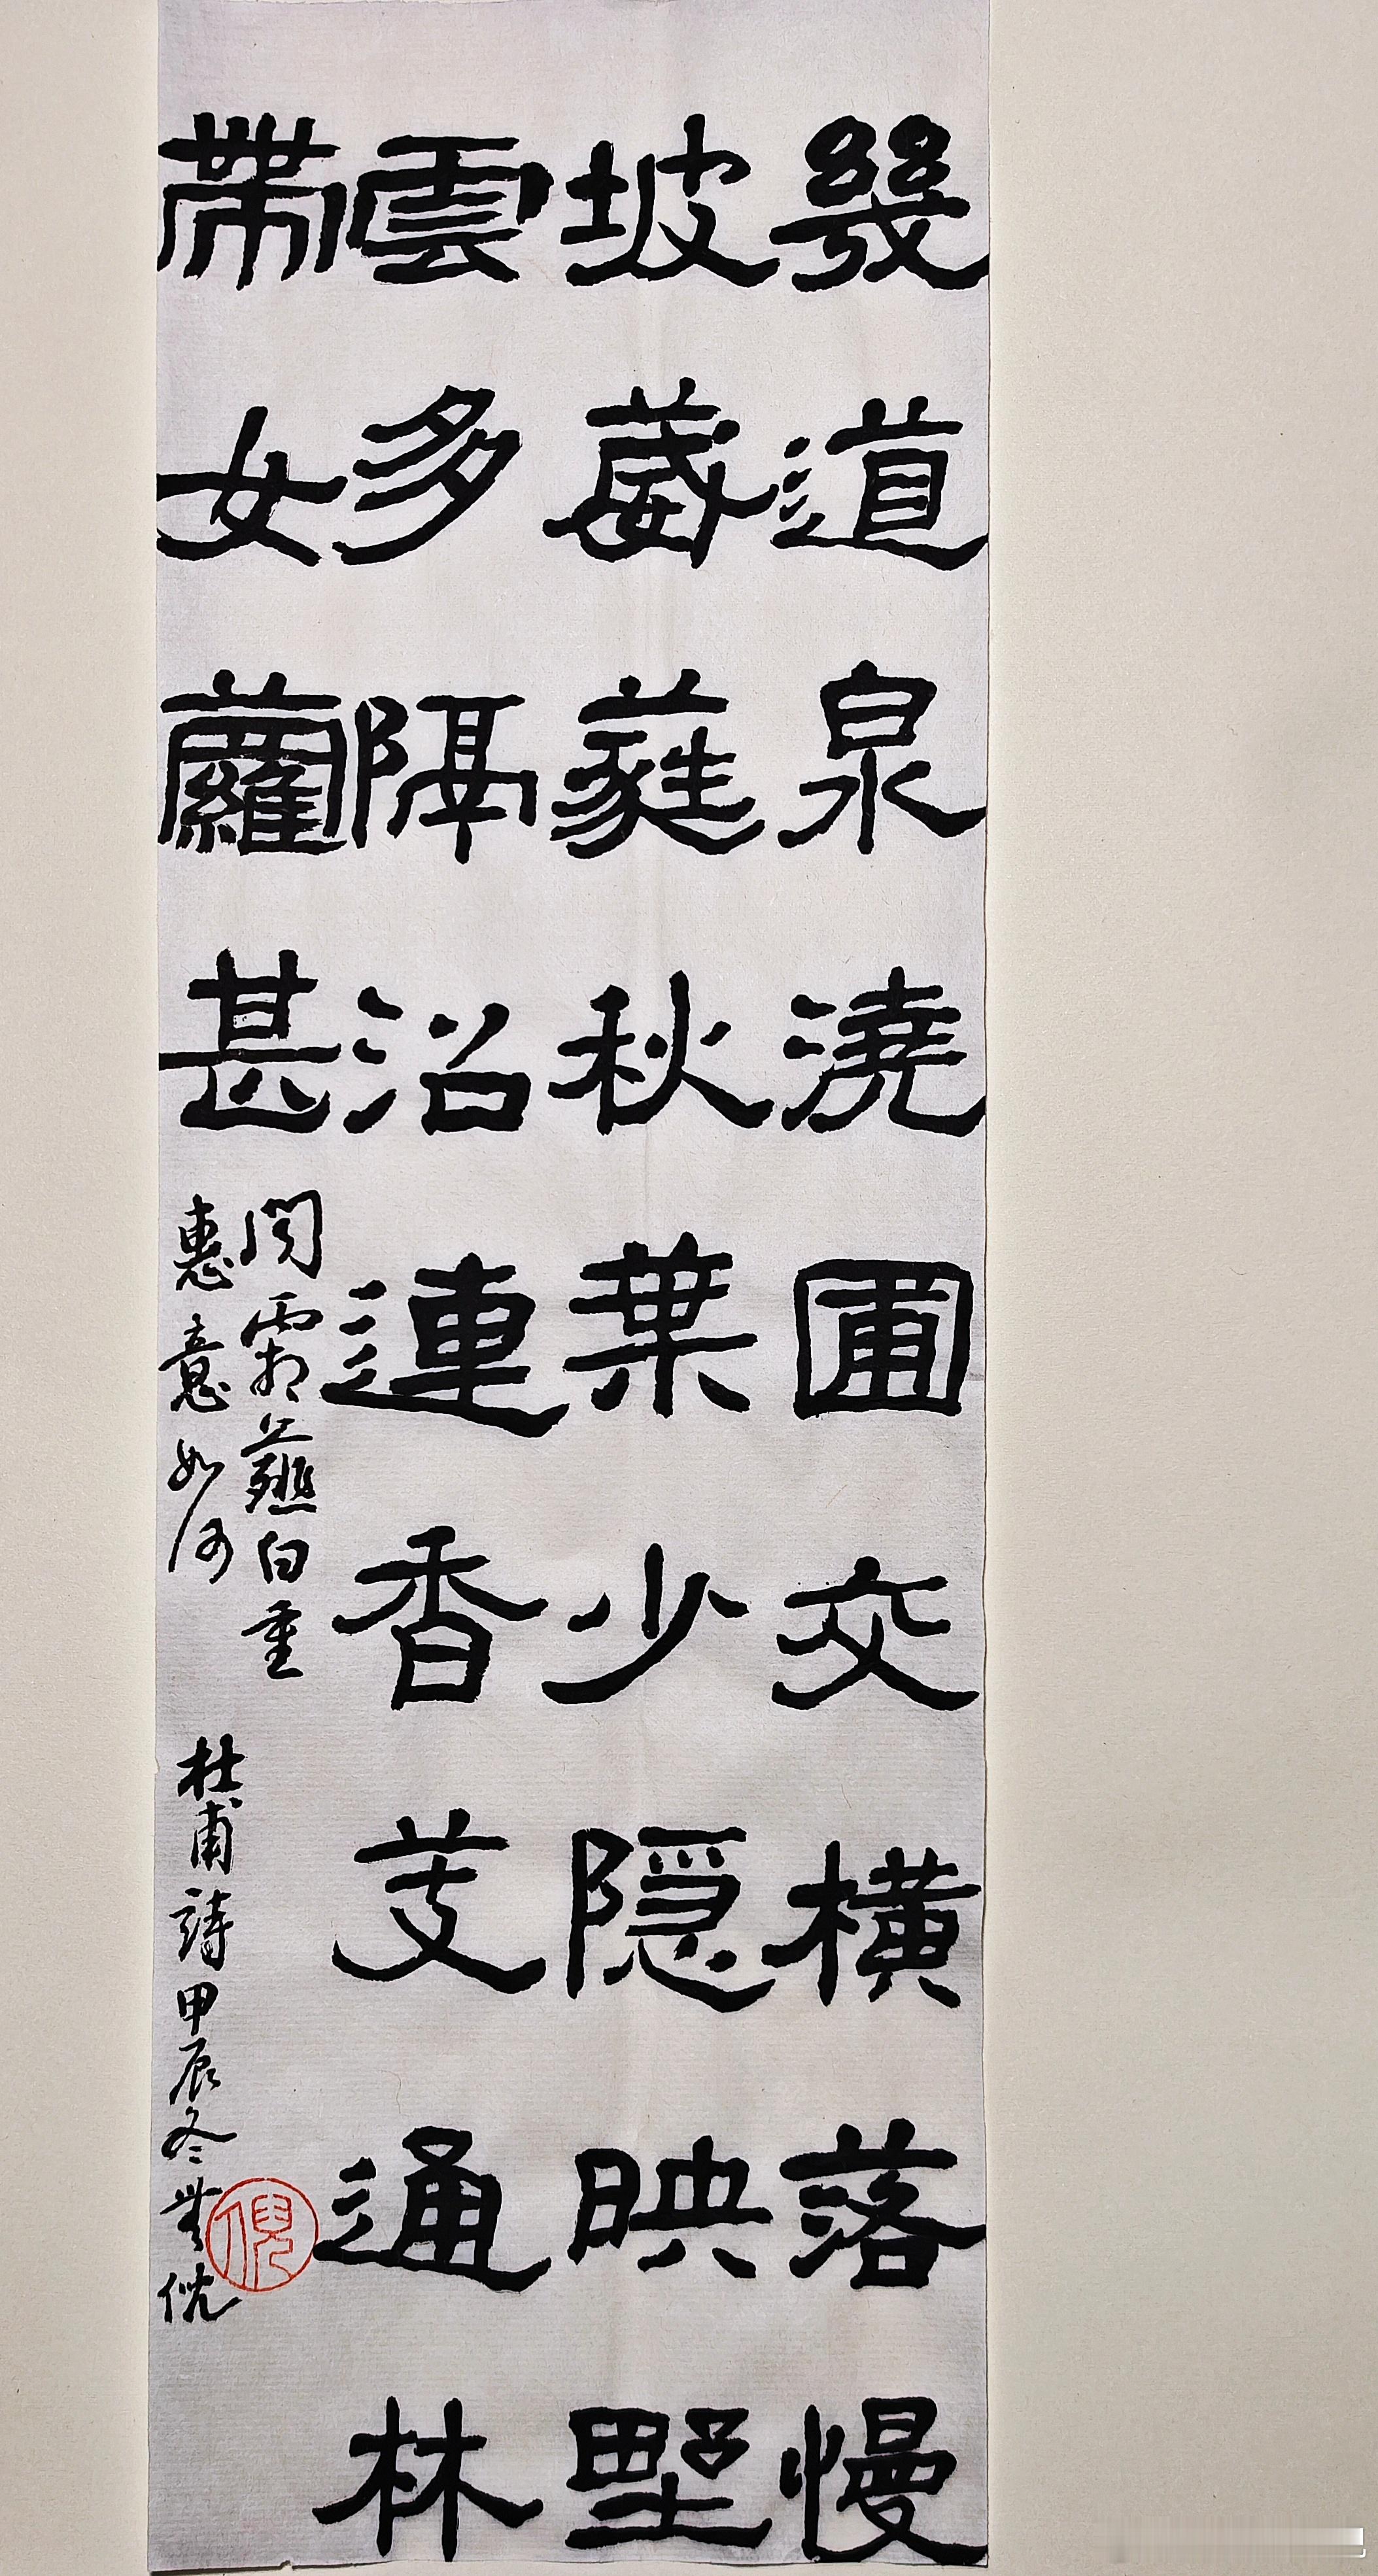 幾道泉澆圃交橫落慢
坡葳蕤秋葉少隱映野
雲多隔沼連香芰通林
帶女蘿甚
聞霜薤白重
惠意如何 杜甫詩甲辰冬無倪
倪